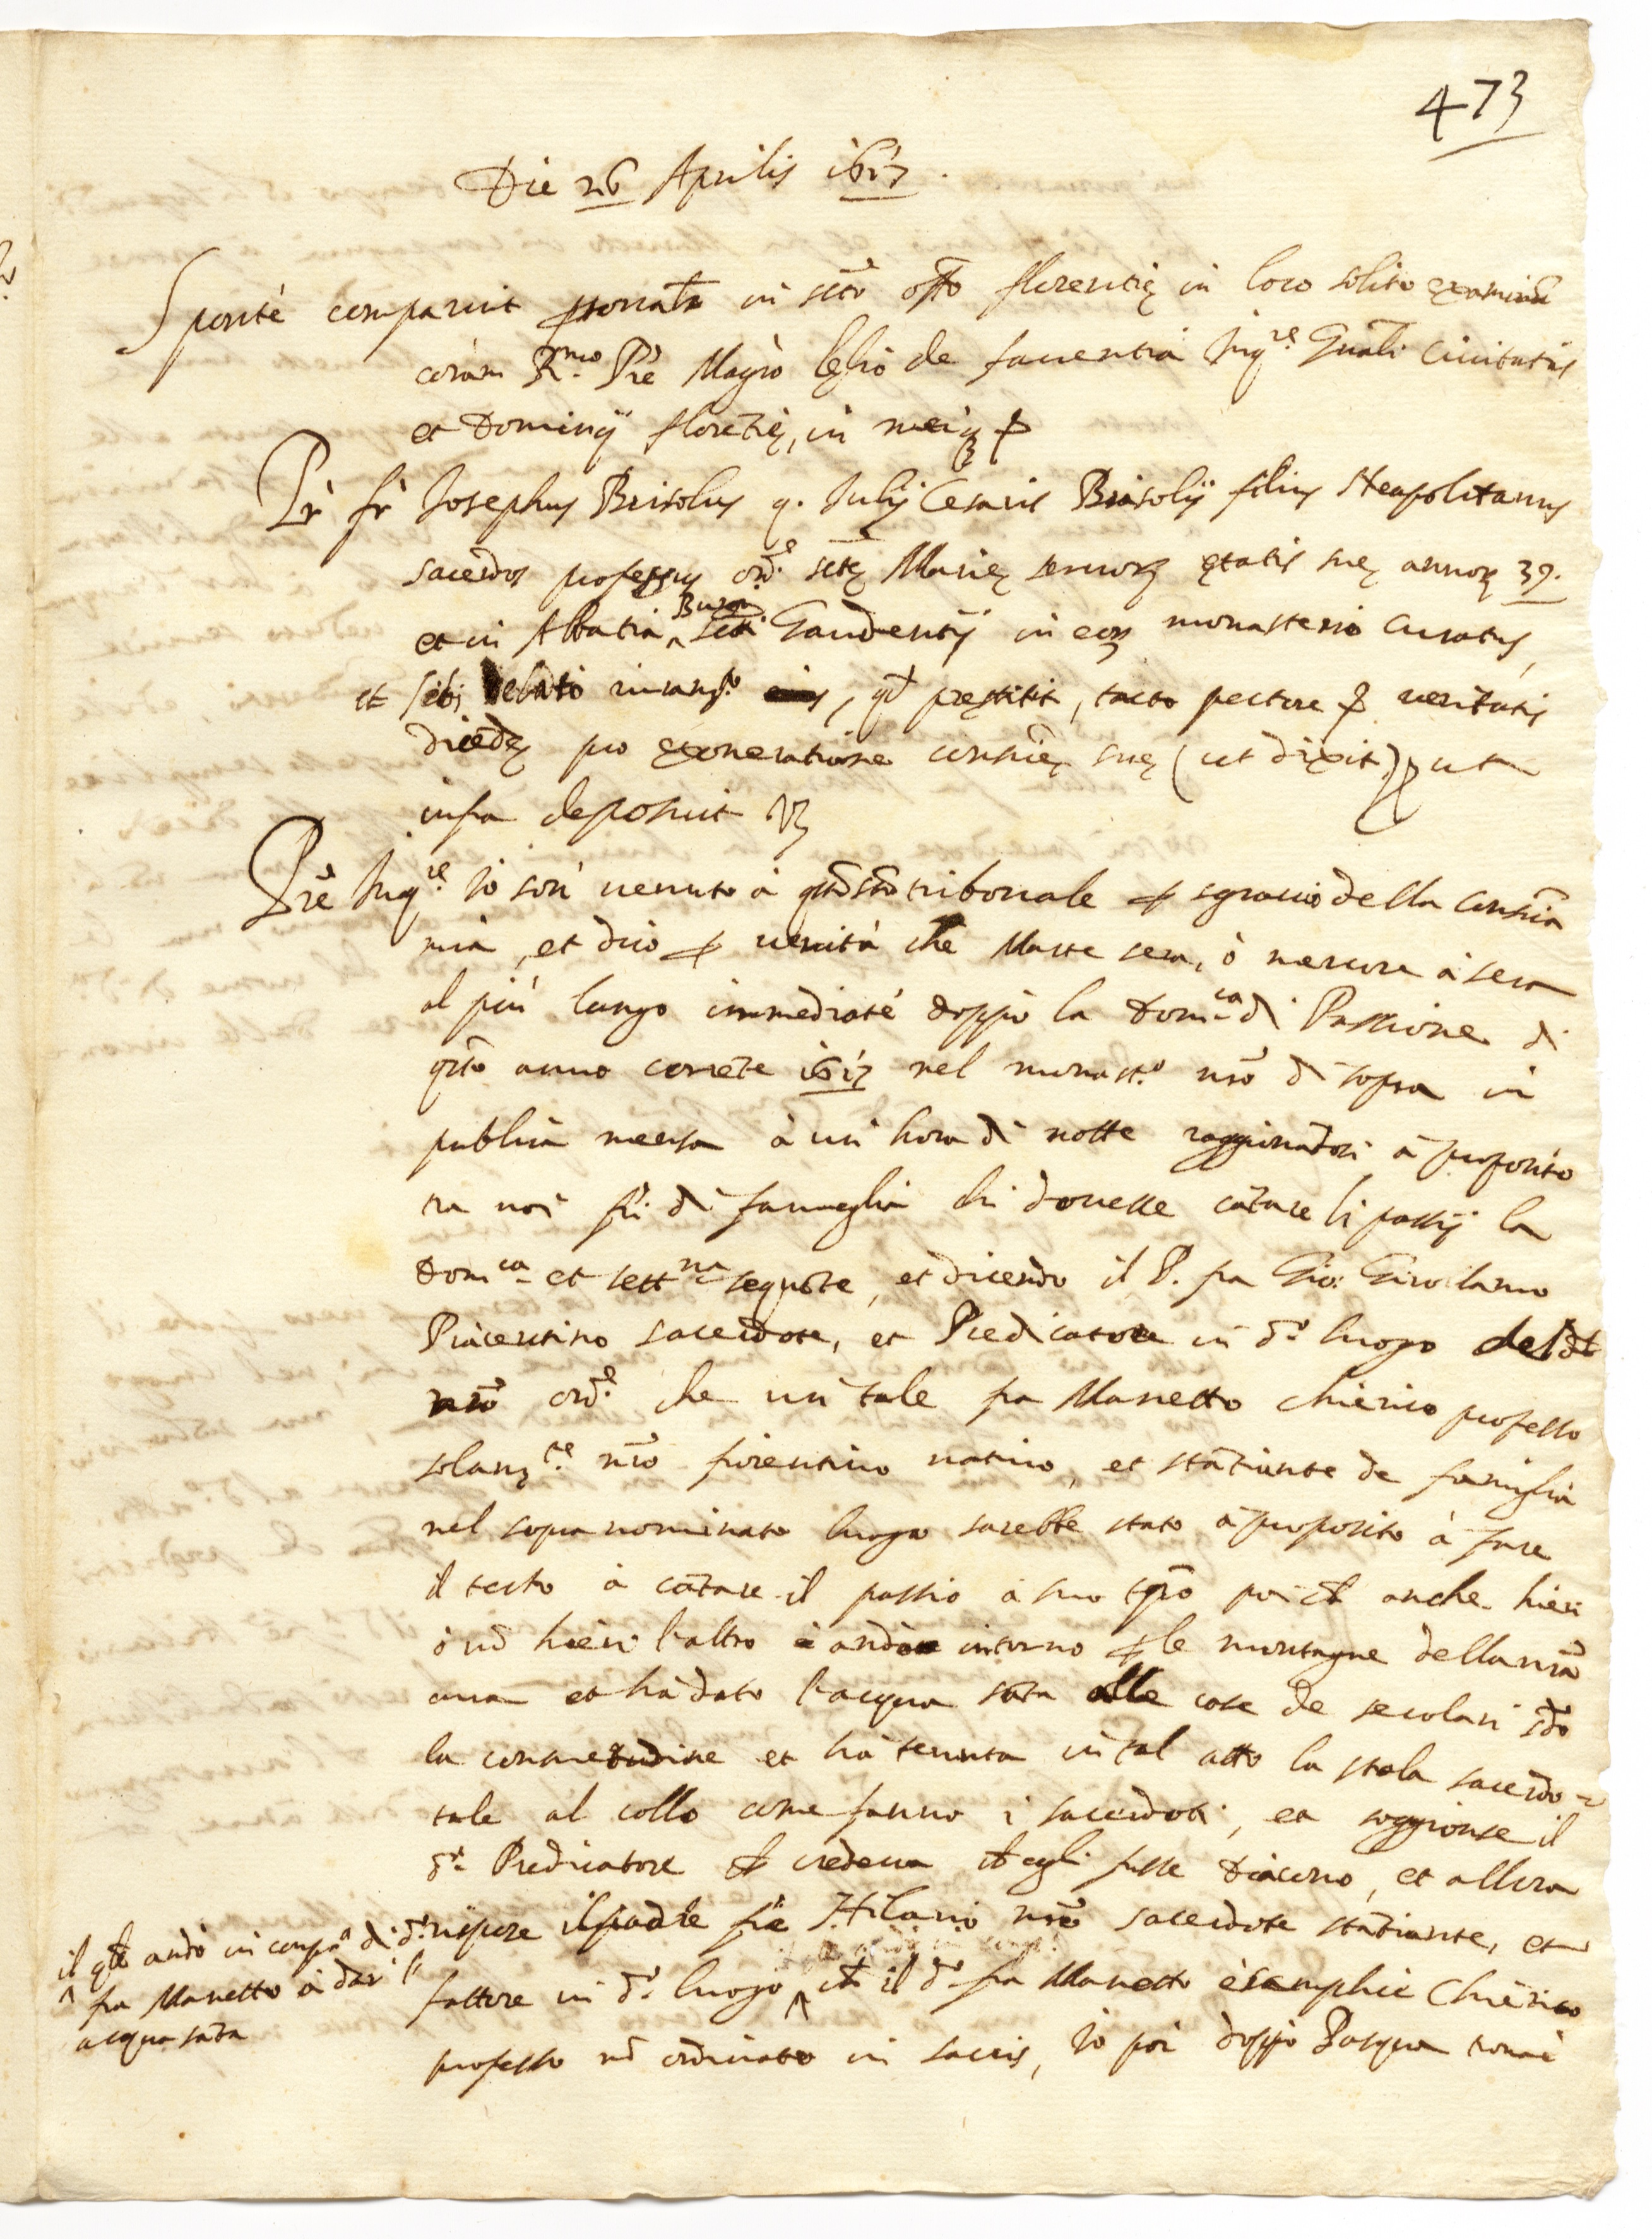 473
Die 26 Aprilis 1617.
Sponte comparuit psonalr in scto offo florentię in loco solito examinũ
coràm R.mo Prē Magrō Lelio de fauentia Inq.re Gnãli Ciuitatis
et Dominij floretię, in meiq p
Pr fr Josephus Brisolus q. Iulij Cesaris Brisolij filius Neapolitanus
sacerdos professus ord.e sctę Marię seruorʒ ętatis suę annorʒ 39.
et in Abbatia ^ Scti Gaudentij in eoʒ monasterio Curatus,
et sibi delato iuram.to, qd pręstitit, tacto pectore p ueritatis
dicędę pro exoneratione consciẽ suę (ut dixit) ut
infra deposuit Vʒ
Prē Inq.re Io son' uenuto à qto sto tribonale p sgrauio della consciã
mia, et dico p uerità che Marte sera, ò mercore à sera
al più longo immediatè doppo la Dom.ca di Passione di
qto anno correte 1617 nel monast.o nrõ di sopra in
publica mensa à un' hora di notte raggionadosi à proposito
tra noi fr̃i di fameglia chi douesse cãtare li passij la
Dom.ca et sett.na sequẽte, et dicendo il P. fra Gio: Girolamo
Piacentino sacerdote, et Predicatore in d.o luogo del
nrõ ord.e che un' tale fra Manetto chierico professo
solam.te nrõ fiorentino natiuo, et statiante de famiglia
nel sopra nominato luogo sarebbe stato à proposito à fare
il testo à cãtare il passio à suo tpõ poi ch anche hieri
ò nõ hieri l'altro è andato intorno p le montagne della nrã
cura et hà dato l'acqua sãta alle case de secolari scdo
la consuetudine et hà tenuta in tal atto la stola sacerdo=
tale al collo come fanno i sacerdoti, et soggionse il
d.o Predicatore ch credeua ch egli fusse Diacono, et allora
rispose il padre fra Hilario nrõ sacerdote statiante, et
fattore in d.o luogo ^ ch il d.o fra Manetto è semplice Chierico
professo nõ ordinato in sacris, Io poi doppo Pasqua tornai
il qle andò in compa.a di d.o
^ fra Manetto à dar l'
acqua sãta